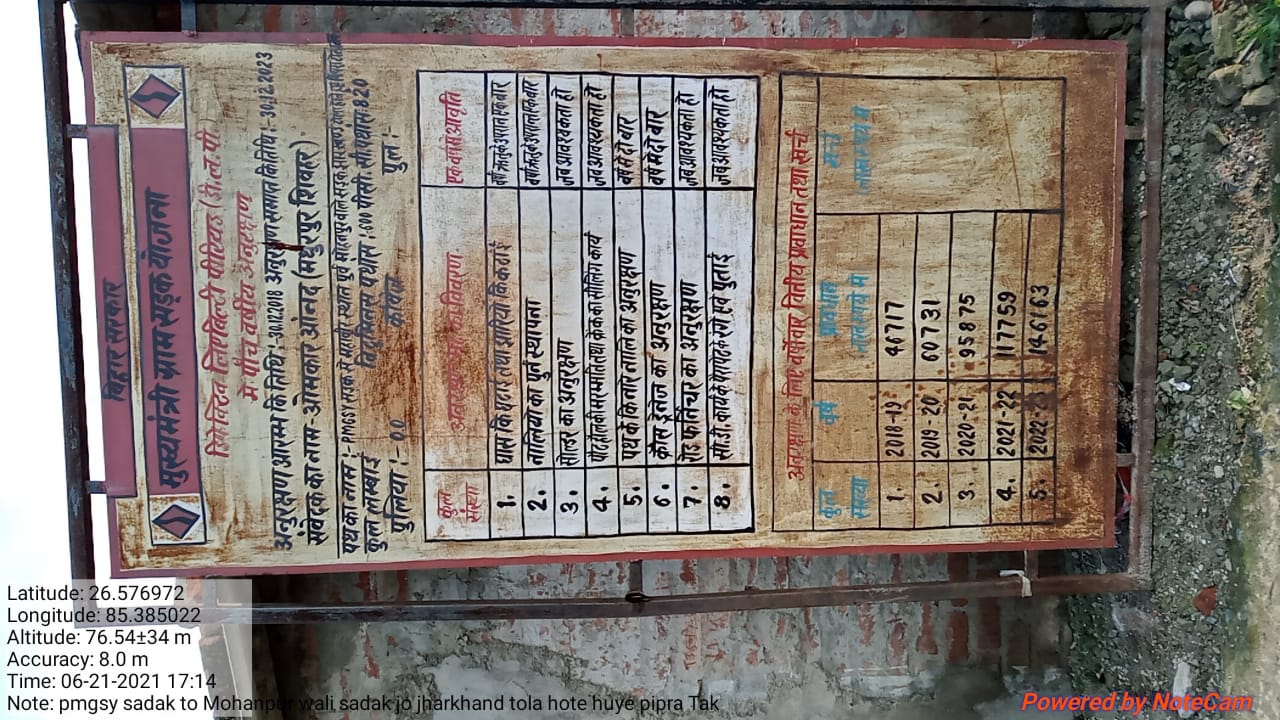 बिहार सरकार
मुख्यमंत्री ग्राम सड़क योजना
डिफेक्ट लिएबिल्टी पीरियड (डी.ल.पी.)
में पाँच वर्षीय अनुरक्षण
अनुरक्षण आरम्भ कि तिथि : -30.12.2018 अनुरक्षण समाप्त कि तिथि : -30.12.2023
संवेदक का नाम - ओमकार आंनद (मधुरपुर शिवहर)
पथ का नाम :- PMGSY सड़क से
कुल लम्बाई विटुमिनस पथांस :.00 पी.सी.सी पथांस: 820
पुलिया :- 00 कॉजवे पुल :-
कुल संख्या अनुरक्षण का विवरण एक वर्ष में आवृति
1. घास कि कटाई तथा झाड़ियो कि कटाई वर्षा ऋतु के उपरान्त एक बार
2. नालियो का पुर्न स्थापना वर्षा ऋतु के उपरान्त एक बार
3. सोल्डर का अनुरक्षण जब आवश्यकता हो
4. पी.टी.होल की मरम्मति तथा क्रेक की सीलिंग कार्य जब आवश्यकता हो
5. पथ के किनारे नाले का अनुरक्षण वर्ष में दो बार
6. क्रॉस ड्रेनेज का अनुरक्षण वर्ष में दो बार
7. रोड फर्निचर का अनुरक्षण जब आवश्यकता हो
8. सी.डी. कार्य के पारापेट के रंगाई एवं पुताई जब आवश्यकता हो
अनुरक्षण के लिए वर्षवार वित्तीय प्रावाधान तथा खर्च
कुल संख्या वर्ष प्रावधान लाख रूपये में खर्च लाख रूपये में
1. 2018-19 46717
2. 2019-20 60731
3. 2020-21 95875
4. 2021-22 117759
5. 2022-23 146163
Latitude: 26.576972
Longitude: 85.385022
Altitude: 76.54±34 m
Accuracy: 8.0 m
Time: 06-21-2021 17:14
Note: pmgsy sadak to Mohanpur wali sadak jo jharkhand tola hote huye pipra Tak
Powered by NoteCam